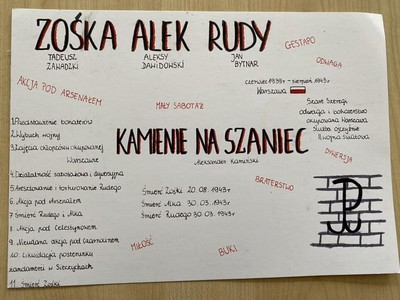 ZOŚKA ALEK RUDY
TADEUSZ ZAWADZKI
ALEKSY DAWIDOWSKI
JAN BYTNAR
GESTAPO
ODWAGA
AKCJA POD ARSENAŁEM
MAŁY SABOTAŻ
czerwiec 1939r - sierpień 1943r
Warszawa
Szare Szeregi
odwaga i bohaterstwo
okupowana Warszawa
Służba ojczyźnie
II wojna światowa
DYWERSJA
KAMIENIE NA SZANIEC
Aleksander Kamiński
1. Przedstawienie bohaterów
2. Wybuch wojny
3. Zajęcia chłopców okupowanej
Warszawie
4. Działalność sabotażowa i dywersyjna
5. Aresztowanie i torturowanie Rudego
6. Akcja pod Arsenałem
7. Śmierć Rudego i Alka
8. Akcja pod Celestynowem
9. Nieudana akcja pod Czarnocinem
10. Likwidacja posterunku
żandarmerii w Sieczychach
11. Śmierć Zośki
Śmierć Zośki 20.08.1943r
Śmierć Alka 30.03.1943r
Śmierć Rudego 30.03.1943r
BRATERSTWO
MIŁOŚĆ
BUKI